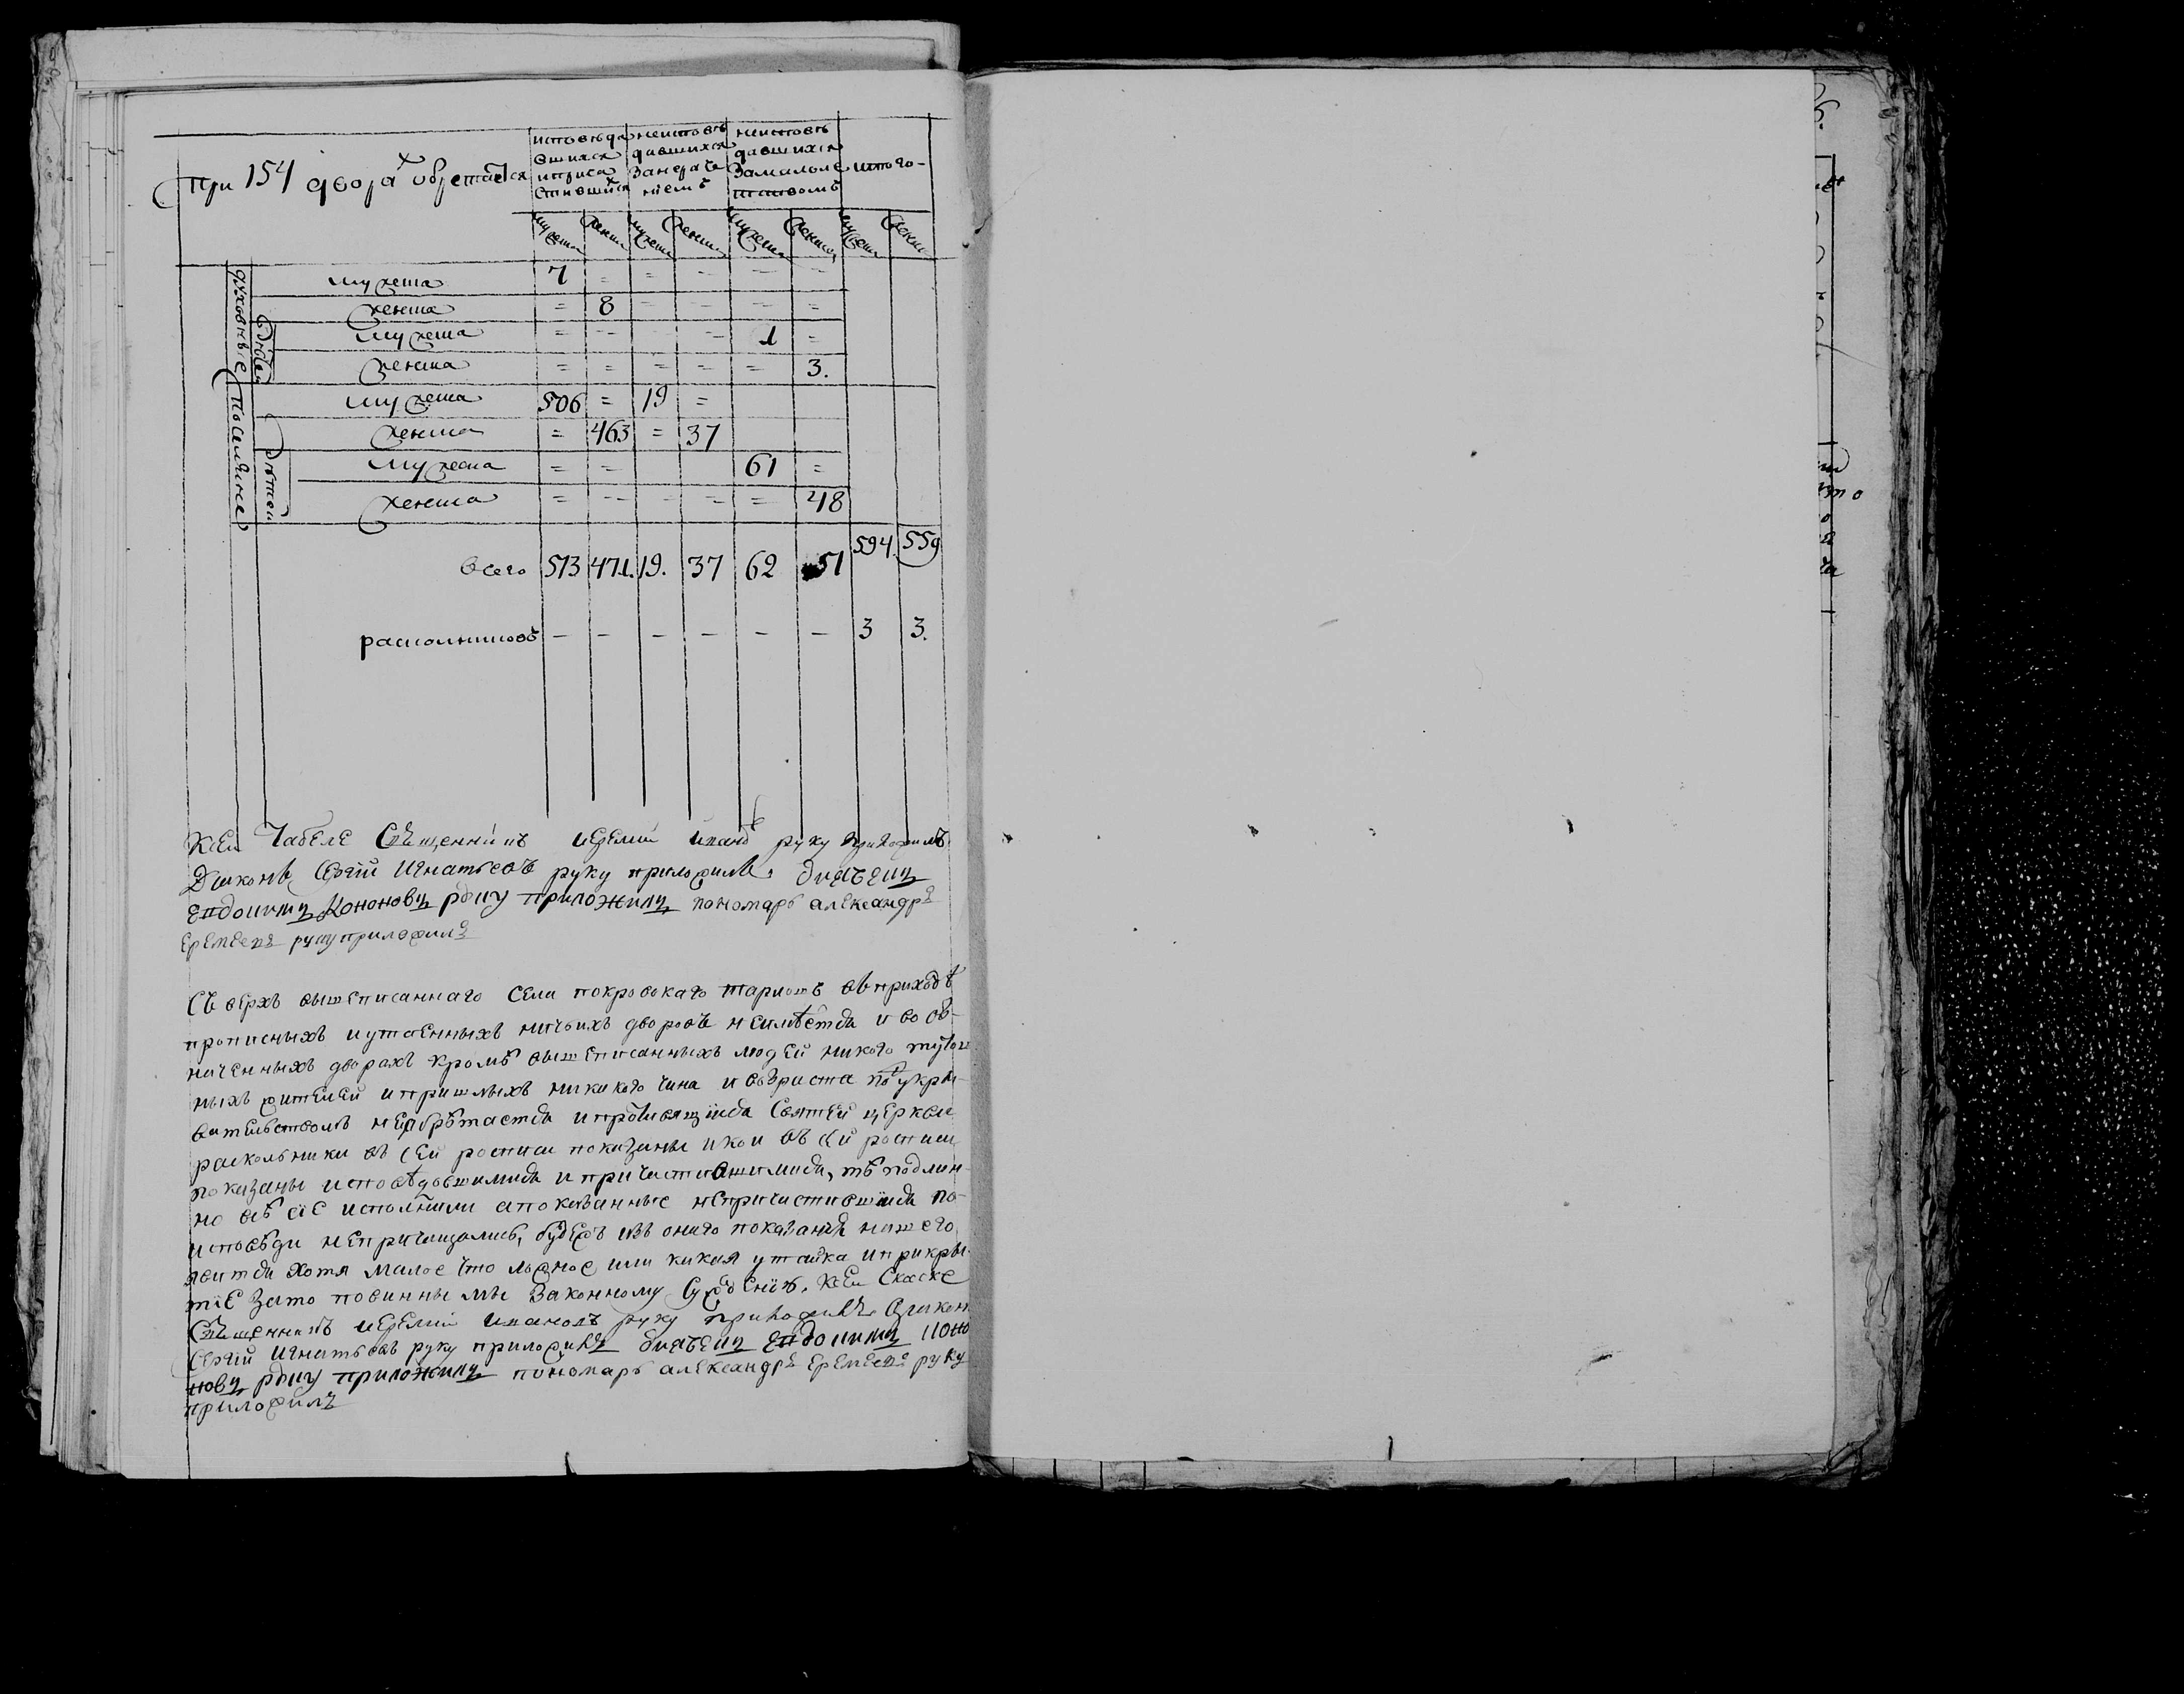 При 154 двора х обретаеtся
исповеда
вшихся
и приса
стившихся
неисповѣ
давшихся
за нераче
ниемъ
неисповѣ
давшихся
за малоле
тствомъ
итого
мужеска женска мужеска женска мужеска женска мужеска женска
духовные
мужеска 7 = = = = =
женска = 8 = = = =
детей
мужеска = = = 1 =
женска = = = = = 3.
поселяне
мужеска 506 = 19 =
женска = 463 = 37
детей
мужеска = = 61 =
женска = = = = = 48
всего 513 471. 19. 37 62 51 594. 559
раскольниковъ — — — — — — 3 3.
Ксей табеле Священникъ Иеремiй Ивановъ руку приложилъ
Дьяконъ Сергiй Игнатьевъ руку приложилъ.
Кононовъ руку приложилъ пономарь александръ
Еремеевъ руку приложилъ
Съ верхъ вышеписаннаго села покровскаго въ приходѣ
прописныхъ и утаенныхъ ничьихъ дворовъ неимѣетца и во об-
наченныхъ дворахъ кромѣ вышеписанныхъ людей никого тутош
ныхъ жителей и пришлыхъ никакого чина и возраста подъ укры-
вательствомъ необрѣтаетца и противящiися Святей церкви
раскольники въ сей росписи показаны и кои въ сей росписи
показаны исповѣдовшимися и причастившимися, тѣ подлин-
но все исполнили а показанные непричастившiися по
исповѣди непричащались, будежъ изъ онаго показанiя нашего
явитца хотя малое что ложное или какая утайка и прикры-
тiе за то повинны мы законному Сужденiю. Ксей Скаске
Священникъ Иеремiй Ивановъ руку приложилъ Дьякон
Сергiй Игнатьевъ руку приложилъ Коно
новъ руку приложилъ пономарь александръ Еремеевъ руку
приложилъ